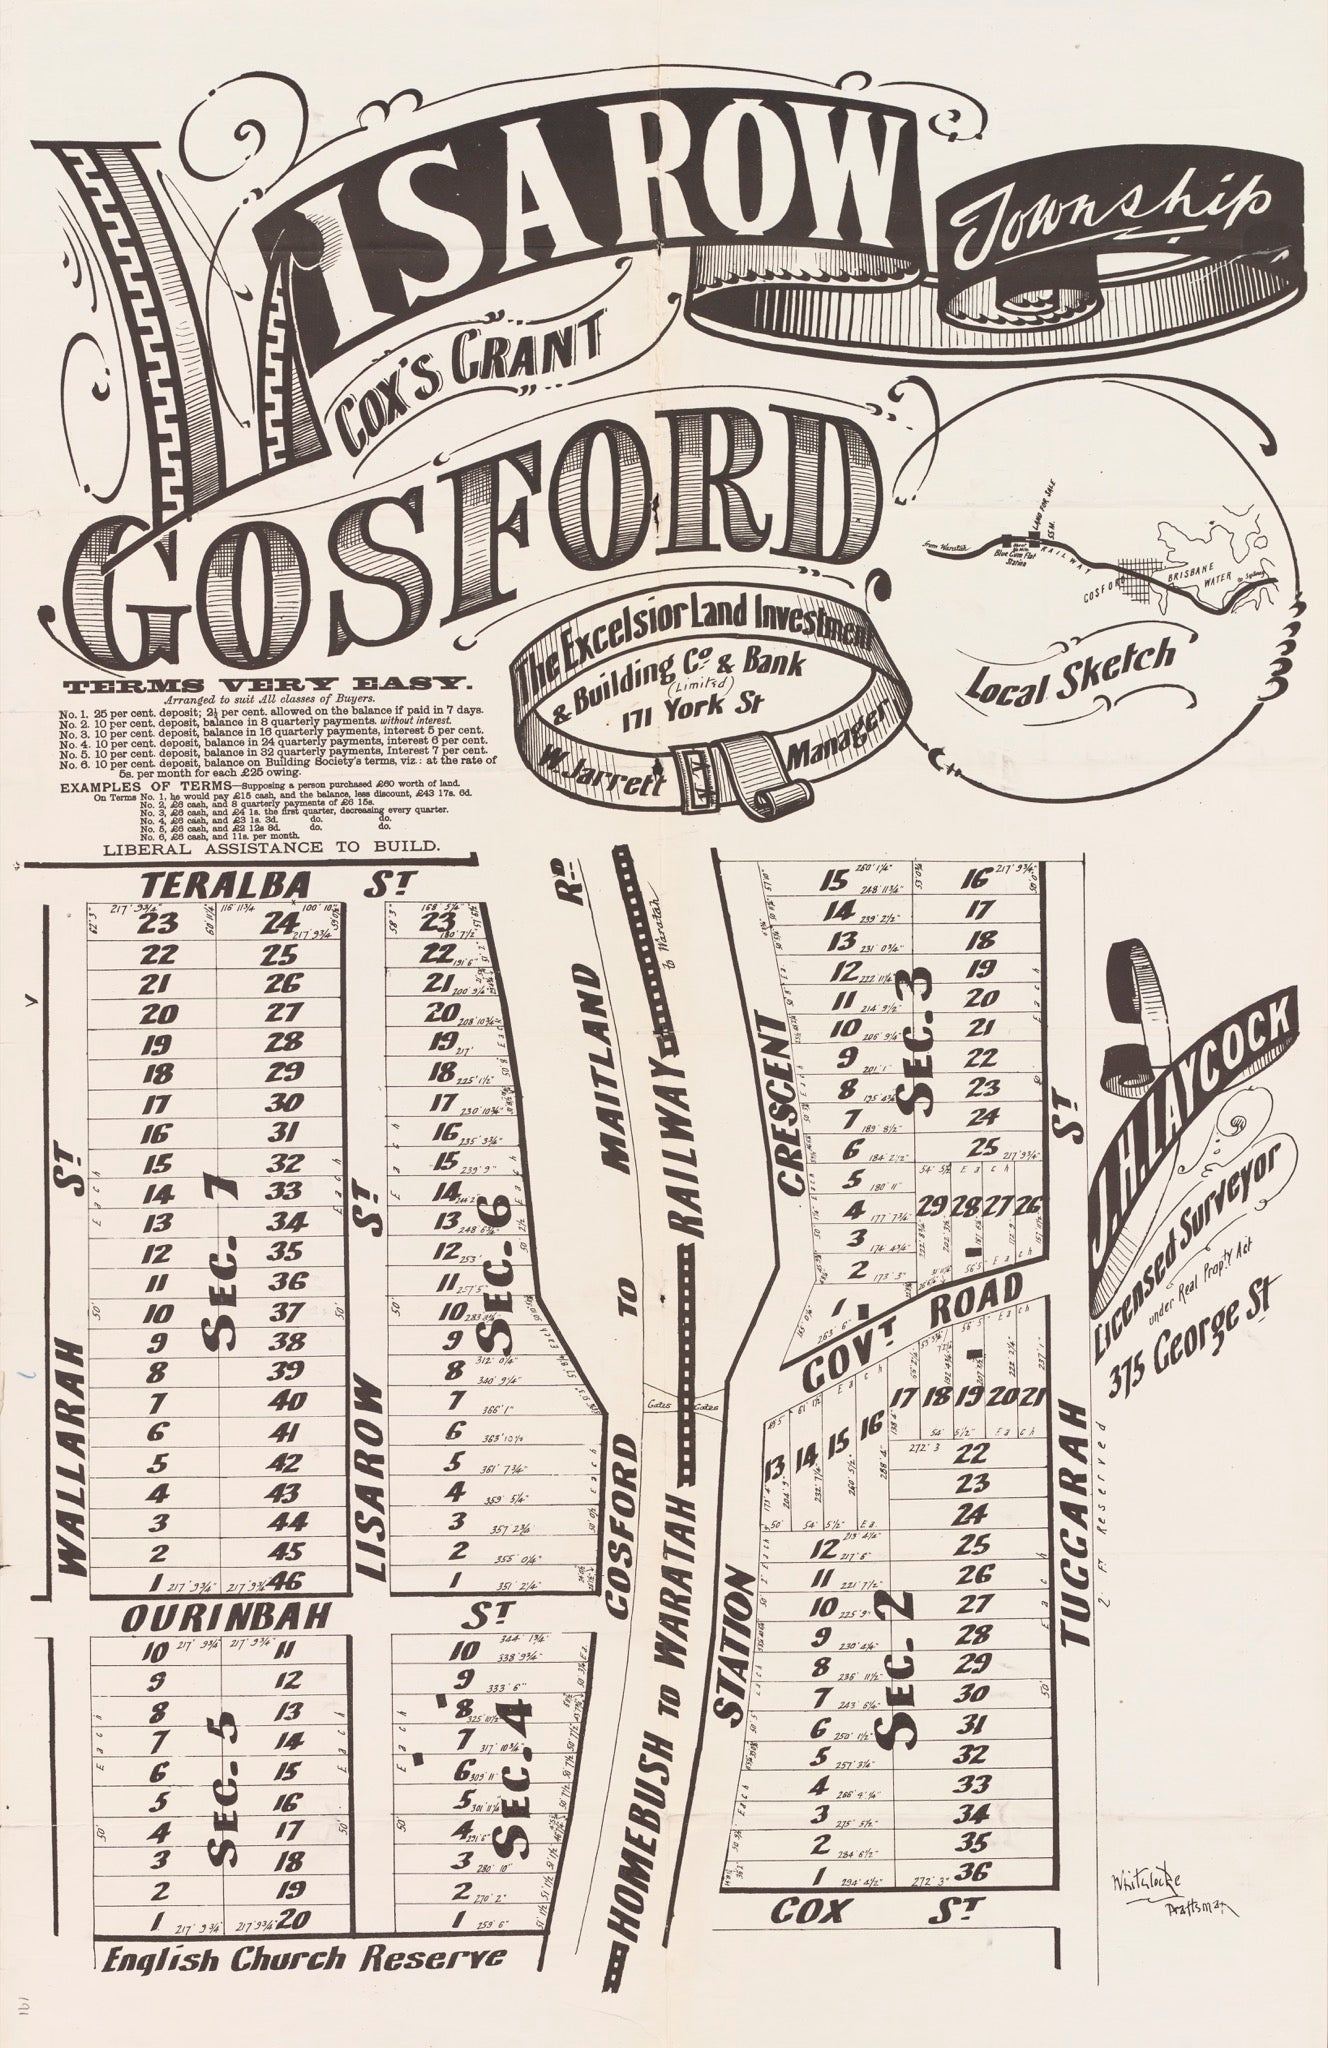 LISAROW
Township
COX'S GRANT
GOSFORD
from Waratah
Blue Gum Flat
Station
LAND FOR SALE
55 M.
RAILWAY
GOSFORD
BRISBANE
WATER
to Sydney
Local Sketch
The Excelsior Land Investment
& Building Co. & Bank
(Limited)
171 York St
W. Jarrett
Manager
TERMS VERY EASY.
Arranged to suit All classes of Buyers.
No. 1. 25 per cent. deposit; 2½ per cent. allowed on the balance if paid in 7 days.
No. 2. 10 per cent. deposit, balance in 8 quarterly payments. without interest.
No. 3. 10 per cent. deposit, balance in 16 quarterly payments, interest 5 per cent.
No. 4. 10 per cent. deposit, balance in 24 quarterly payments, interest 6 per cent.
No. 5. 10 per cent. deposit, balance in 32 quarterly payments, Interest 7 per cent.
No. 6. 10 per cent. deposit, balance on Building Society's terms, viz: at the rate of
5s. per month for each £25 owing.
EXAMPLES OF TERMS—Supposing a person purchased £60 worth of land.
On Terms No. 1, he would pay £15 cash, and the balance, less discount, £43 17s. 6d.
No. 2, £6 cash, and 8 quarterly payments of £6 15s.
No. 3, £6 cash, and £4 1s. the first quarter, decreasing every quarter.
No. 4, £6 cash, and £3 1s. 3d. do. do.
No. 5, £6 cash, and £2 12s 8d. do. do.
No. 6, £6 cash, and 11s. per month.
LIBERAL ASSISTANCE TO BUILD.
TERALBA ST
WALLARAH ST
LISAROW ST
23 24
22 25
21 26
20 27
19 28
18 29
17 30
16 31
15 32
14 33
13 34
12 35
11 36
10 37
9 38
8 39
7 40
6 41
5 42
4 43
3 44
2 45
1 217' 9¾" 217' 9¾" 46
SEC. 7
23
22
21
20
19 217'
18 225' 1½"
17
16
15 239' 9"
14
13
12 253'
11
10
9
8
7 366' 1"
6
5
4
3
2
1
SEC. 6
OURINBAH ST
10 217' 9¾" 217' 9¾" 11
9 12
8 13
7 14
6 15
5 16
4 17
3 18
2 19
1 217' 9¾" 217' 9¾" 20
SEC. 5
10
9 333' 6"
8
7
6 309' 11"
5
4
3 280' 10"
2 270' 2"
1 259' 6"
SEC. 4
English Church Reserve
GOSFORD TO MAITLAND RD
to Waratah
HOMEBUSH TO WARATAH RAILWAY
Gates Gates
STATION CRESCENT
15 16 217' 9¾"
14 17
13 18
12 19
11 20
10 21
9 22
8 23
7 24
6 25 217' 9¾"
5
4 29 28 27 26
3
2 173' 3"
1
SEC. 3
GOVT ROAD
TUGGARAH ST
17 18 19 20 21
13 14 15 16
22
23
24
12 217' 6" 25
11 221' 7½" 26
10 225' 9" 27
9 28
8 29
7 30
6 31
5 32
4 33
3 34
2 35
1 272' 3" 36
SEC. 2
COX ST
2 Ft Reserved
J.H. LAYCOCK
Licensed Surveyor
under Real Propty Act
375 George St
Whitelocke
Draftsman
161